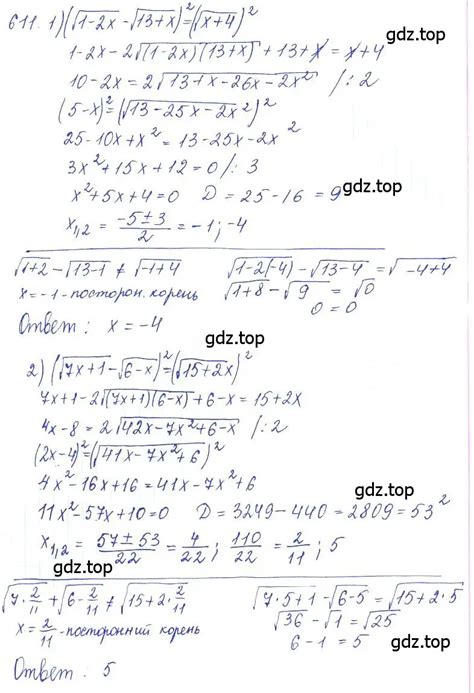 611. 1) (√(1-2x) - √(13+x))² = (√(x+4))²
gdz.top
1-2x-2√((1-2x)(13+x)) + 13+x = x+4
10-2x = 2√(13+x-26x-2x²) /:2
(5-x)² = (√(13-25x-2x²))²
25-10x+x² = 13-25x-2x²
3x²+15x+12=0 /:3
x²+5x+4=0 D = 25-16 = 9
gdz.top
x₁,₂ = (-5±3)/2 = -1; -4
√(1+2) - √(13-1) ≠ √(-1+4) √(1-2(-4)) - √(13-4) = √(-4+4)
x=-1-посторон. корень √(1+8) - √9 = √0
0 = 0
Ответ: x = -4
gdz.top
2) (√(7x+1) - √(6-x))² = (√(15+2x))²
7x+1-2√((7x+1)(6-x)) +6-x = 15+2x
4x-8 = 2√(42x-7x²+6-x) /:2
(2x-4)² = (√(41x-7x²+6))²
4x²-16x+16 = 41x-7x²+6
gdz.top
11x²-57x+10=0 D = 3249-440 = 2809 = 53²
x₁,₂ = (57±53)/22 = 4/22; 110/22 = 2/11; 5
√(7·2/11) + √(6-2/11) ≠ √(15+2·2/11) √(7·5+1) - √(6-5) = √(15+2·5)
x=2/11-посторонний корень √36 - √1 = √25
6-1 = 5
Ответ: 5
gdz.top